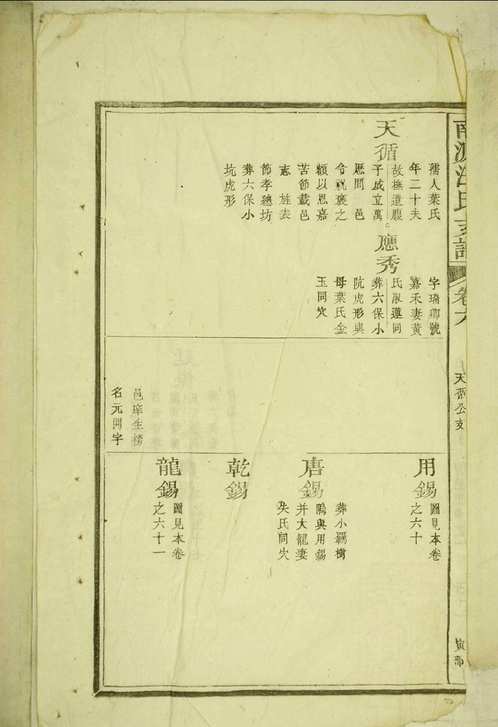 南源汪氏支譜
卷六
天循公支
寅部
天循
孺人葉氏
年二十夫
故撫遺腹
子成立萬
曆間 邑
令
額以恩嘉
苦節載邑
志 旌表
節孝總坊
葬六保小
坑虎形
應秀
字瑞卿號
嘉禾妻黃
氏淑蓮同
葬六保小
阬虎形與
母葉氏金
玉同穴
邑庠生榜
名元開字
用錫
圖見本卷
之六十
唐錫
葬小
鵬與用錫
并大龍妻
朱氏同穴
乾錫
龍錫
圖見本卷
之六十一